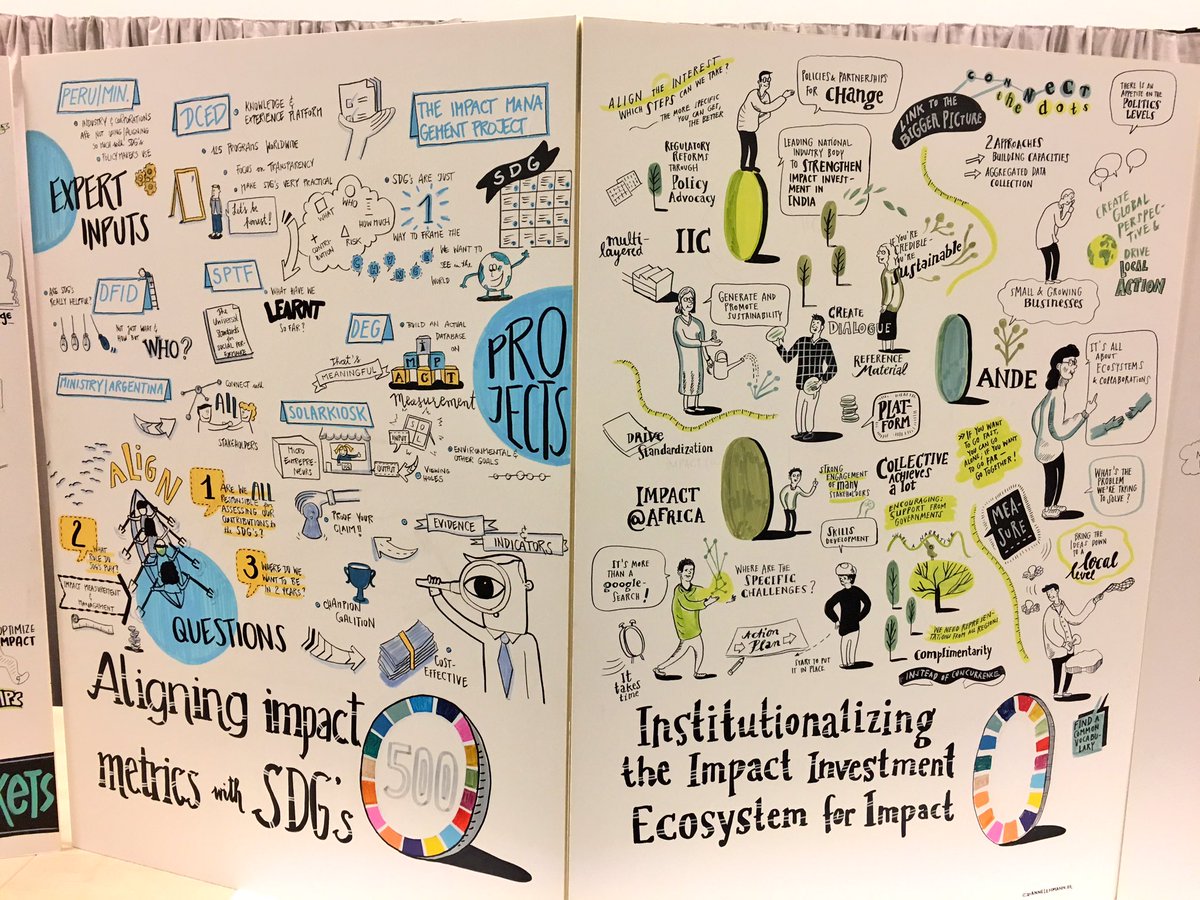 PERU/MIN.
• INDUSTRY & CORPORATIONS
ARE NOT USING/ALIGNING
SO MUCH WITH SDG'S
• POLICY MAKERS USE
EXPERT
INPUTS
DCED
• KNOWLEDGE &
EXPERIENCE PLATFORM
• 125 PROGRAMS WORLDWIDE
• FOCUS ON TRANSPARENCY
• MAKE SDG'S VERY PRACTICAL
Let's be
honest!
THE IMPACT MANA
GEMENT PROJECT
WHAT
WHO
HOW MUCH
+
CONTRI-
BUTION
RISK
• SDG'S ARE JUST
1
WAY TO FRAME THE
CHANGE
WE WANT TO
SEE in the
WORLD
SDG
• ARE SDG'S
REALLY HELPFUL?
DFID
• NOT JUST WHAT &
HOW BUT
WHO?
SPTF
The
Universal
Standards
for
SOCIAL PER-
FORMANCE
• WHAT HAVE WE
LEARNT
SO FAR?
DEG
• BUILD AN ACTUAL
DATABASE
ON
IMP
ACT
Measurement
That's
MEANINGFUL
PRO
JECTS
MINISTRY/ARGENTINA
• CONNECT with
All
STAKEHOLDERS
SOLARKIOSK
MICRO
ENTREPRE-
NEURS
INPUT
OUTPUT
• ENVIRONMENTAL &
OTHER GOALS
• VIEWING
HOLES
ALIGN
1
ARE WE ALL
RESPONSIBLE for
ASSESSING OUR
CONTRIBUTIONS to
the SDG'S?
2
WHAT
ROLE DO
SDG'S PLAY?
3
WHERE TO WE
WANT TO BE
IN 2 YEARS?
IMPACT MEASUREMENT
&
MANAGEMENT
QUESTIONS
• PROOF YOUR
CLAIM!!
• EVIDENCE
&
INDICATORS
• CHAMPION
COALITION
• COST-
EFFECTIVE
Aligning impact
metrics with SDG's
500
OPTIMIZE
IMPACT
KETS
ALIGN THE INTEREST
WHICH STEPS CAN WE TAKE?
THE MORE SPECIFIC
YOU CAN GET,
THE BETTER
POLICIES & PARTNERSHIPS
FOR CHANGE
REGULATORY
REFORMS
THROUGH
Policy
Advocacy
LEADING NATIONAL
INDUSTRY BODY
TO STRENGTHEN
IMPACT INVEST-
MENT IN
INDIA
IIC
multi-
layered
LINK TO THE
BIGGER PICTURE
CONNECT
the dots
2 APPROACHES
→ BUILDING CAPACITIES
→ AGGREGATED DATA
COLLECTION
THERE IS AN
APPETITE ON THE
POLITICS
LEVELS
IF YOU'RE
CREDIBLE –
YOU'RE
sustainable
CREATE
GLOBAL
PERSPEC-
TIVE &
DRIVE
LOCAL
ACTION
SMALL & GROWING
BUSINESSES
GENERATE AND
PROMOTE
SUSTAINABILITY
CREATE
DIALOGUE
REFERENCE
Material
ANDE
IT'S ALL
ABOUT
ECOSYSTEMS
& COLLABORATIONS
PLAT-
FORM
DRIVE
Standardization
IMPACT
@AFRICA
STRONG
ENGAGEMENT
OF MANY
STAKEHOLDERS
COLLECTIVE
ACHIEVES
A LOT
ENCOURAGING:
SUPPORT FROM
GOVERNMENTS
»IF YOU WANT
TO GO FAST,
YOU CAN GO
ALONE, IF YOU WANT
TO GO FAR –
GO TOGETHER!
WHAT'S THE
PROBLEM
WE'RE TRYING
TO SOLVE?
MEA-
SURE
SKILLS
DEVELOPMENT
BRING THE
IDEAS DOWN
TO A
local
level
IT'S MORE
THAN A
google-
SEARCH!
WHERE ARE THE
SPECIFIC
CHALLENGES?
It
takes
time
Action
Plan
START TO PUT
IT IN PLACE
WE NEED REPRESEN-
TATIONS FROM ALL REGIONS
Complimentarity
INSTEAD OF CONCURRENCE
FIND A
COMMON
VOCABU-
LARY
Institutionalizing
the Impact Investment
Ecosystem for Impact